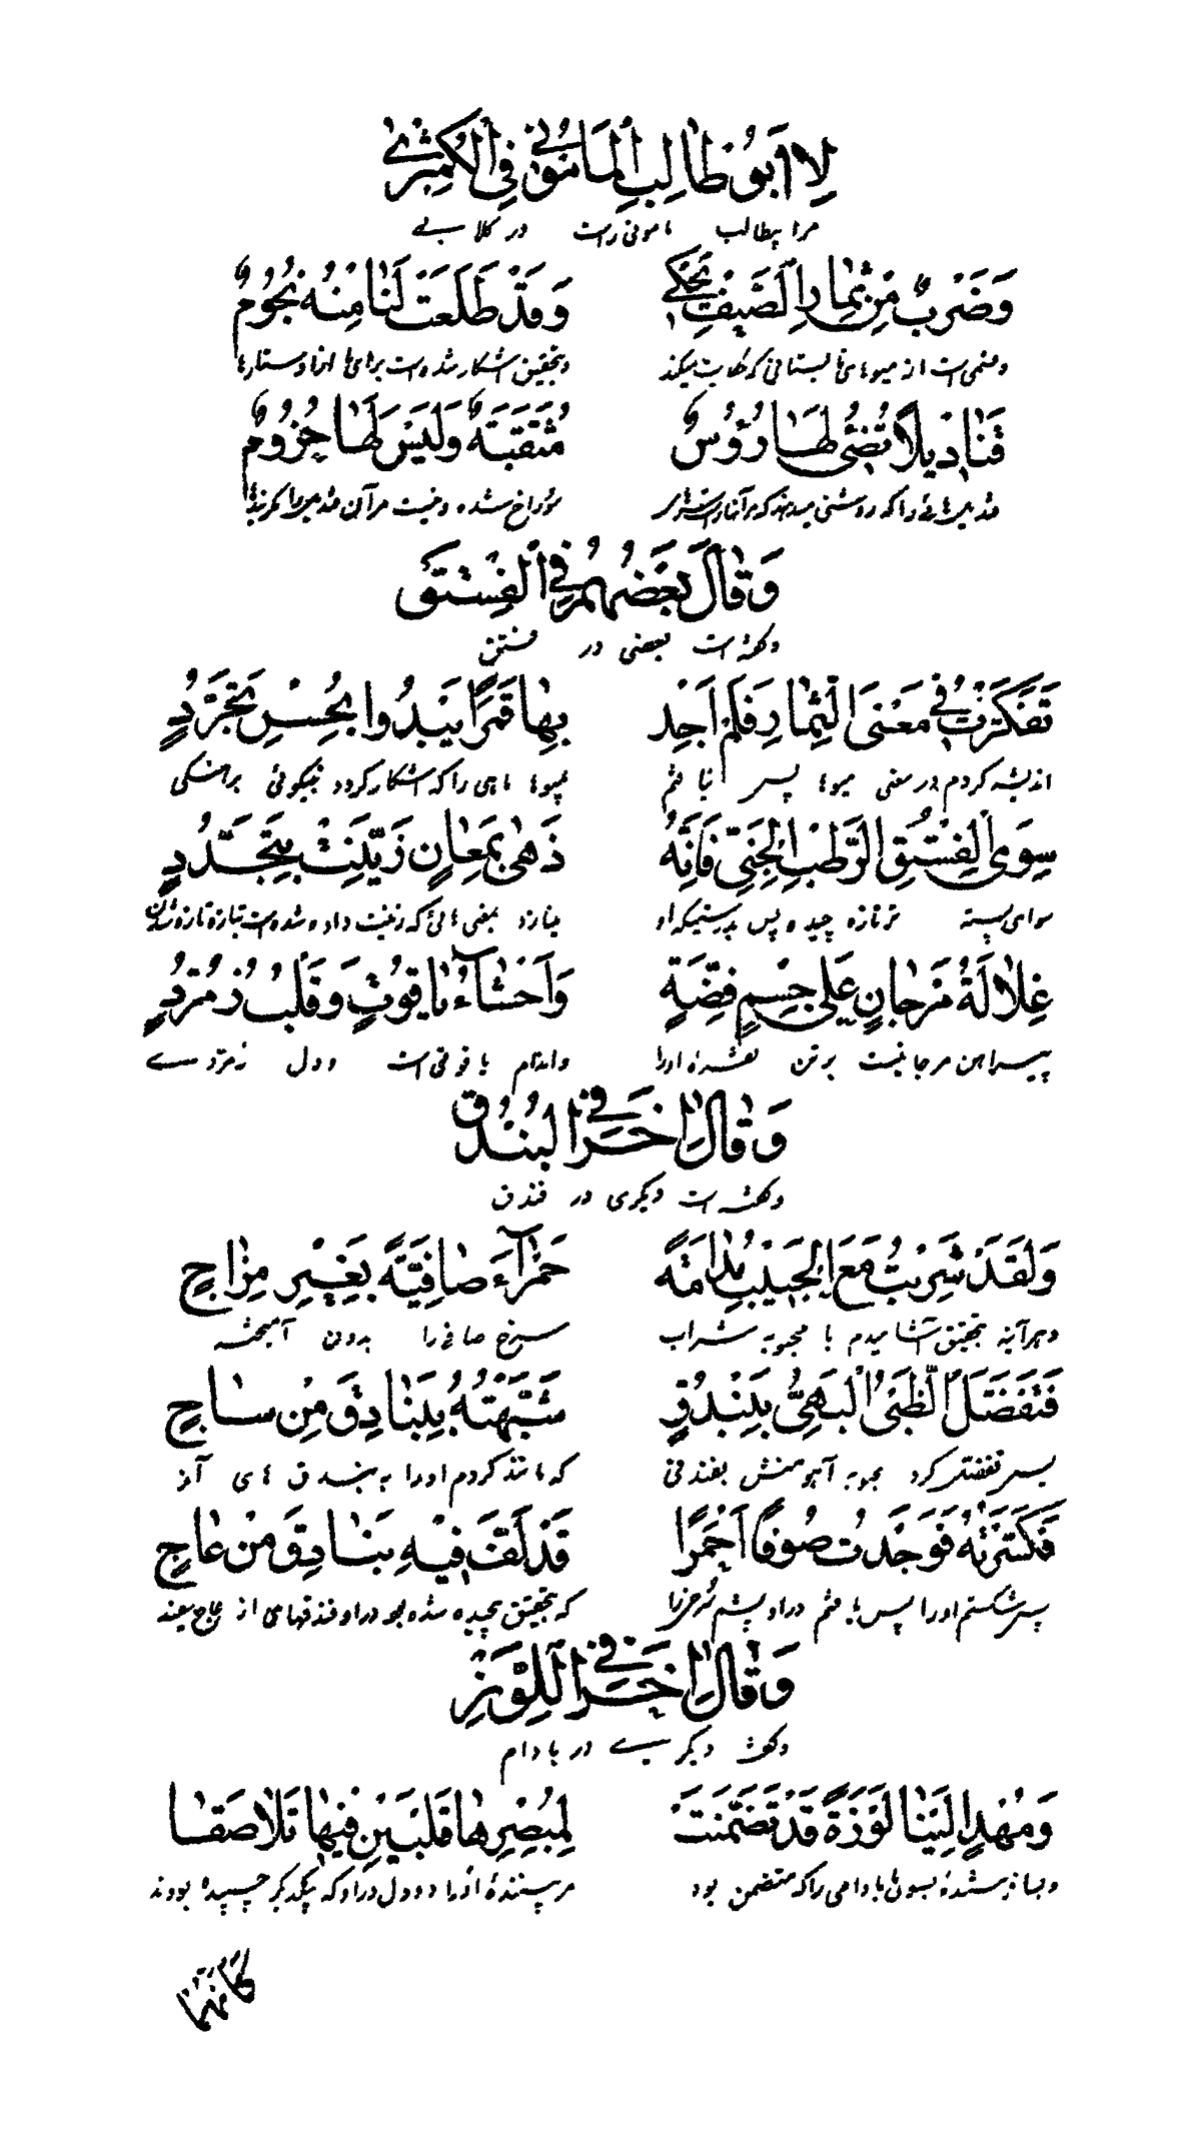 لِاَبُو طَالِبِ الْمَامُونِي فِي الْكُمِّثْرٰے
مرا بیطالب مامونی راست در کلابے
وَضَرْبٌ مِنْ ثِمَارِ الصَّيْفِ يَحْكِے وَقَدْ طَلَعَتْ لَنَا مِنْهُ نُجُومٌ
وقسمی است از میوهای تابستانی که حکایت میکند وبتحقیق اشکار شده است برای ما ازاو ستارها
قَنَادِيلاً تُضِئُ لَهَا رُؤُسٌ مُثَقَّبَةٌ وَلَيْسَ لَهَا خُرُومٌ
قندیلهائی را که روشنی میدهند که مرآنها را سوراخ شده ونیست مرآن قندیلها را
وَقَالَ بَعْضُهُمْ فِي الْفُسْتَقِ
وگفته است بعضی در فستق
تَفَكَّرْتُ فِي مَعْنَى الثِّمَارِ فَلَمْ اَجِدْ بِهَا قَمَرًا يَبْدُوا بِحُسْنِ تَجَرُّدٍ
اندیشه کردم در معنی میوها پس نیافتم بمیوها ماهی را که اشکار کردد بنیکوئی برهنگی
سِوَى الْفِسْتُقِ الرَّطْبِ الْجَنِيِّ فَاِنَّهُ زَهٰى بِمَعَانٍ زَيَّنَتْ بِتَجَدُّدٍ
سوای پسته ترتازه چیده پس بدرستیکه او مینازد بمعنی هائی که زینت داده شده است بتازه تازه شدن
غِلَالَةُ مَرْجَانٍ عَلٰى جِسْمِ فِضَّةٍ وَاَحْشَآءُ يَاقُوتٍ وَقَلْبُ زُمُرَّدٍ
پیراهن مرجانیست برتن نقره اورا واندام یاقوتی است ودل زمردے
وَقَالَ اٰخَرُ فِي الْبُنْدُقِ
وگفته است دیگری در فندق
وَلَقَدْ شَرِبْتُ مَعَ الْحَبِيْبِ مُدَامَةً حَمْرَآءَ صَافِيَةً بِغَيْرِ مِزَاجٍ
وهرآینه بتحقیق آشامیدم با محبوبه شراب سرخ صافی را بدون آمیخته
فَتَفَضَّلَ الظَّبْىُ الْبَهِىُّ بِبُنْدُقٍ شَبَّهْتُهُ بِبَنَادِقَ مِنْ سَاجٍ
پس تفضل کرد محبوبه آهومنش بفندقی که مانند کردم اورا به بندق های از
فَكَسَرْتُهُ فَوَجَدْتُ صُوفًا اَحْمَرًا قَدْ لَفَّ فِيْهِ بَنَادِقَ مِنْ عَاجٍ
پس شکستم اورا پس یافتم دراو پشم سرخرا که بتحقیق پیچیده شده بود دراو فندقهای از عاج سفید
وَقَالَ اٰخَرُ فِي الَّلوْزِ
وگفته دیگرے در بادام
وَمُهْدٍ اِلَيْنَا لَوْزَةً قَدْ تَضَمَّنَتْ لِمُبْصِرِهَا قَلْبَيْنِ فِيْهَا تَلَاصَقَا
وبسا فرستنده بسوی ما بادامی را که متضمن بود مر بیننده اورا دودل دراو که بیکدیگر چسپیده بودند
كَاَنَّهُمَا